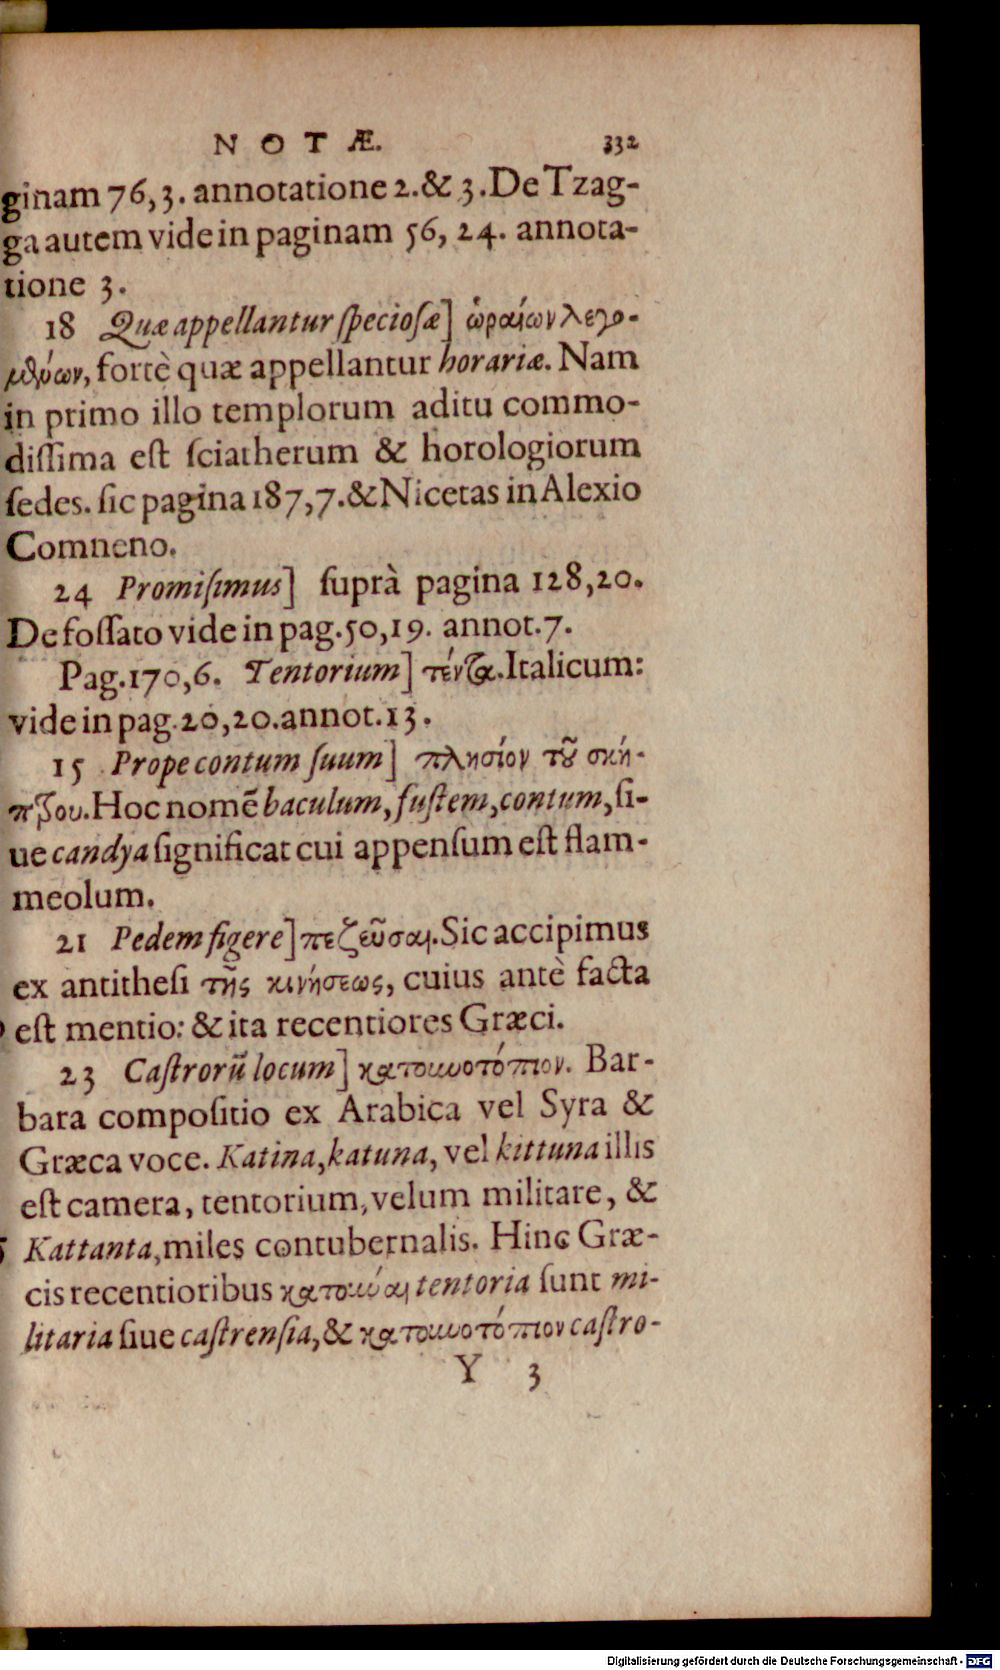 NOTÆ. 332
ginam 76,3. annotatione 2. & 3. De Tzag-
ga autem vide in paginam 56, 24. annota-
tione 3.
18 Quæ appellantur speciosæ] ὡραίων λεγο-
μένων, fortè quæ appellantur horariæ. Nam
in primo illo templorum aditu commo-
dissima est sciatherum & horologiorum
sedes. sic pagina 187,7. & Nicetas in Alexio
Comneno.
24 Promisimus] suprà pagina 128,20.
De fossato vide in pag. 50,19. annot. 7.
Pag. 170,6. Tentorium] τέντα. Italicum:
vide in pag. 20,20. annot. 13.
15 Prope contum suum] πλησίον τοῦ σκή-
πτρου. Hoc nomē baculum, fustem, contum, si-
ue candya significat cui appensum est flam-
meolum.
21 Pedem figere] πεζεῦσαι. Sic accipimus
ex antithesi τῆς κινήσεως, cuius antè facta
est mentio: & ita recentiores Græci.
23 Castrorū locum] κατουνοτόπιον. Bar-
bara compositio ex Arabica vel Syra &
Græca voce. Katina, katuna, vel kittuna illis
est camera, tentorium, velum militare, &
Kattanta, miles contubernalis. Hinc Græ-
cis recentioribus κατοῦναι tentoria sunt mi-
litaria siue castrensia, & κατουνοτόπιον castro-
Y 3
Digitalisierung gefördert durch die Deutsche Forschungsgemeinschaft - DFG